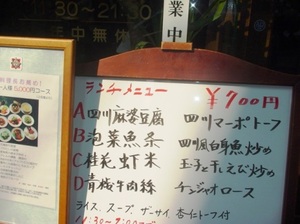 30~21:30
年中無休
営業中
一人様 5,000円コース
ランチメニュー ¥700円
A 四川麻婆豆腐 四川マーボトーフ
B 泡菜魚条 四川風白身魚炒め
C 桂花虾米 玉子と干しえび炒め
D 青椒牛肉絲 チンジャオロース
ライス、スープ、ザーサイ、杏仁トーフ付